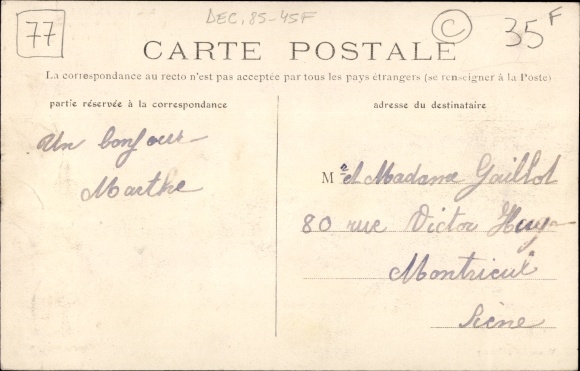 77
DEC, 85-45F
C
35F
CARTE POSTALE
La correspondance au recto n'est pas acceptée par tous les pays étrangers (se renseigner à la Poste)
partie réservée à la correspondance
Un bonjour
Marthe
adresse du destinataire
M r et Madame Gaillot
80 rue Victor Hugo
Montrieuil
Seine